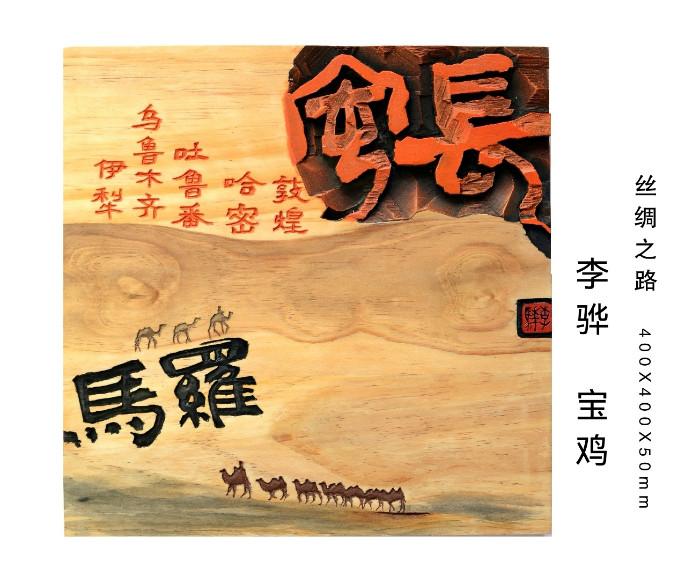 長安
敦煌
哈密
吐鲁番
乌鲁木齐
伊犁
羅馬
丝绸之路 400X400X50mm
李骅 宝鸡